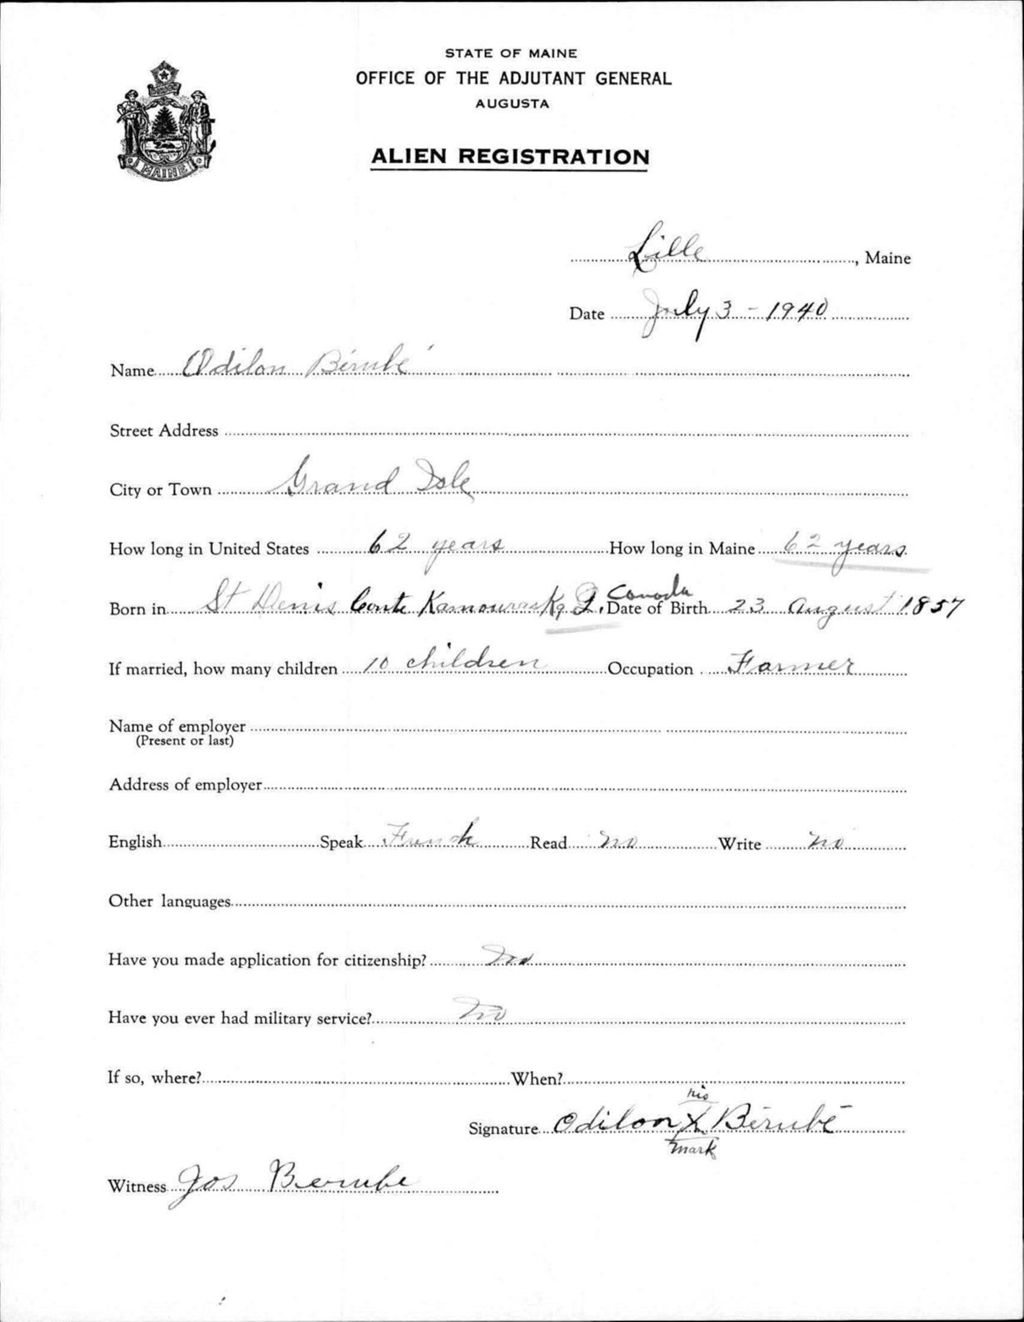 STATE OF MAINE
OFFICE OF THE ADJUTANT GENERAL
AUGUSTA
ALIEN REGISTRATION
MAINE
Lille, Maine
Date July 3 - 1940
Name Odilon Bérubé
Street Address
City or Town Grand Isle
How long in United States 62 years How long in Maine 62 years
Born in St Denis Conte Kamouraska, Q, Canada Date of Birth 23 August 1857
If married, how many children 10 children Occupation Farmer
Name of employer
(Present or last)
Address of employer
English Speak French Read No Write No
Other languages
Have you made application for citizenship? No
Have you ever had military service? No
If so, where? When?
his
Signature Odilon X Bérubé
mark
Witness Jos Berube